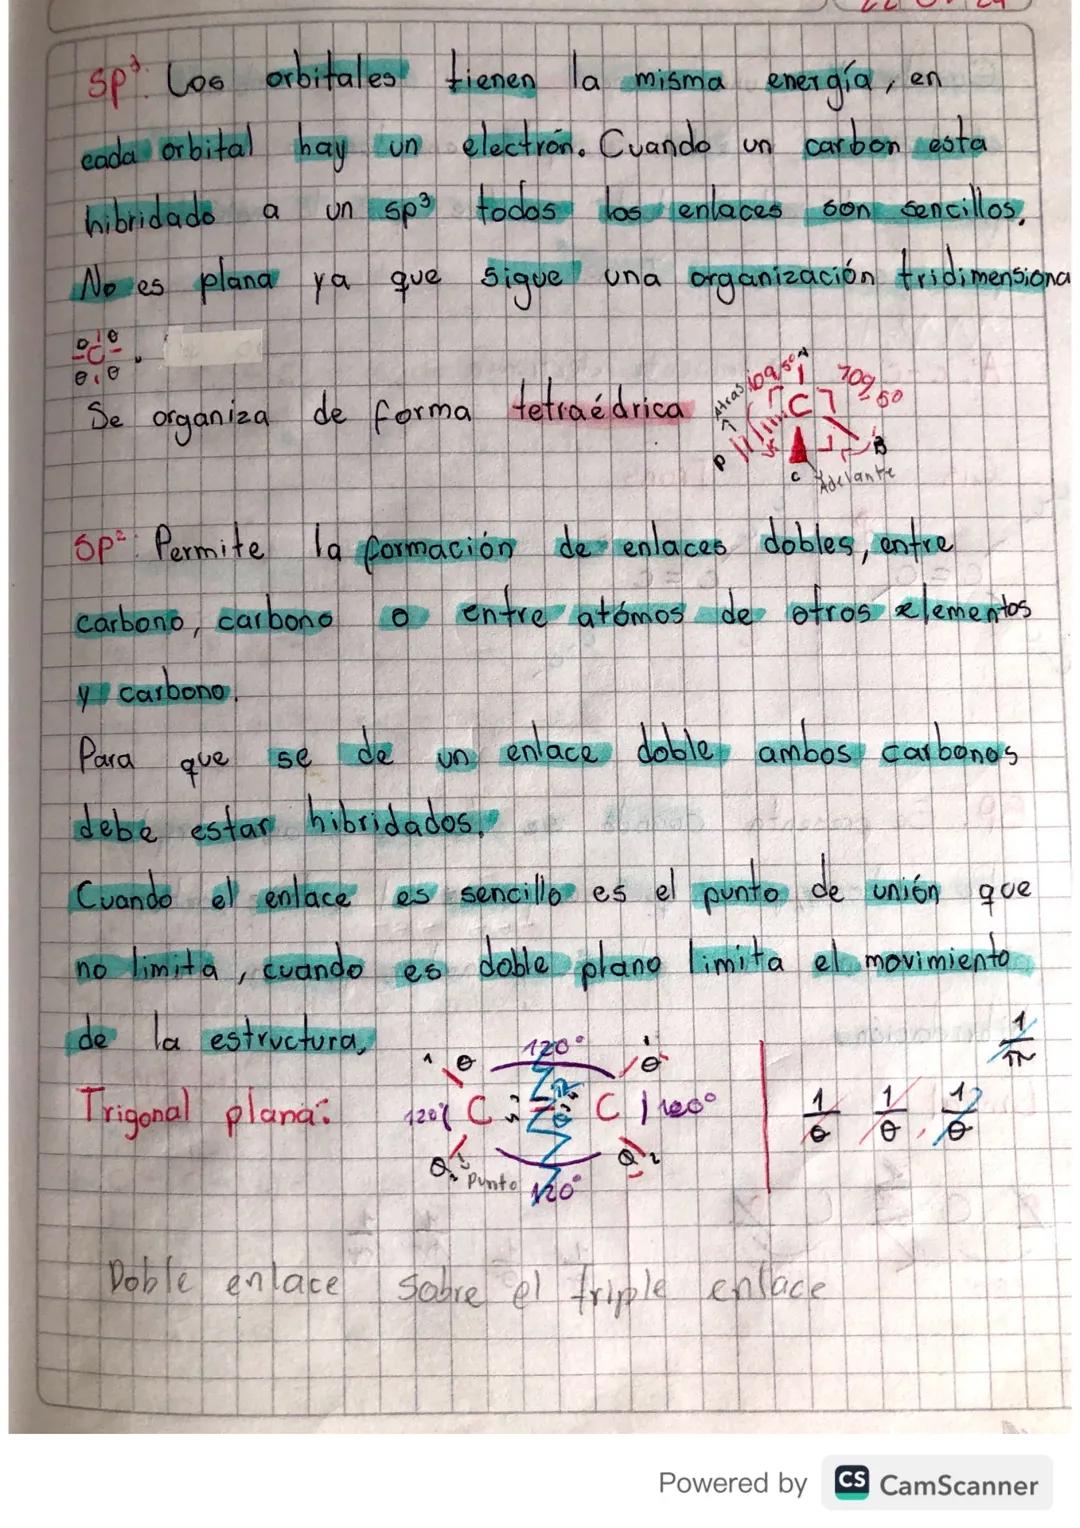 sp³: Los orbitales tienen la misma energía, en
cada orbital hay un electrón. Cuando un carbon esta
hibridado a un sp³ todos los enlaces son sencillos.
No es plana ya que sigue una organización tridimensiona
C
Se organiza de forma tetraédrica
Atras
109,50
A
109,50
C
B
P
C
Adelante
sp²: Permite la formación de enlaces dobles, entre
carbono, carbono o entre atómos de otros elementos
y carbono.
Para que se de un enlace doble ambos carbonos
debe estar hibridados.
Cuando el enlace es sencillo es el punto de unión que
no limita, cuando es doble plano limita el movimiento
de la estructura.
Trigonal plana:
120°
C C
120°
Punto
1
π
1 1 1
θ θ θ
Doble enlace sobre el triple enlace
Powered by CS CamScanner